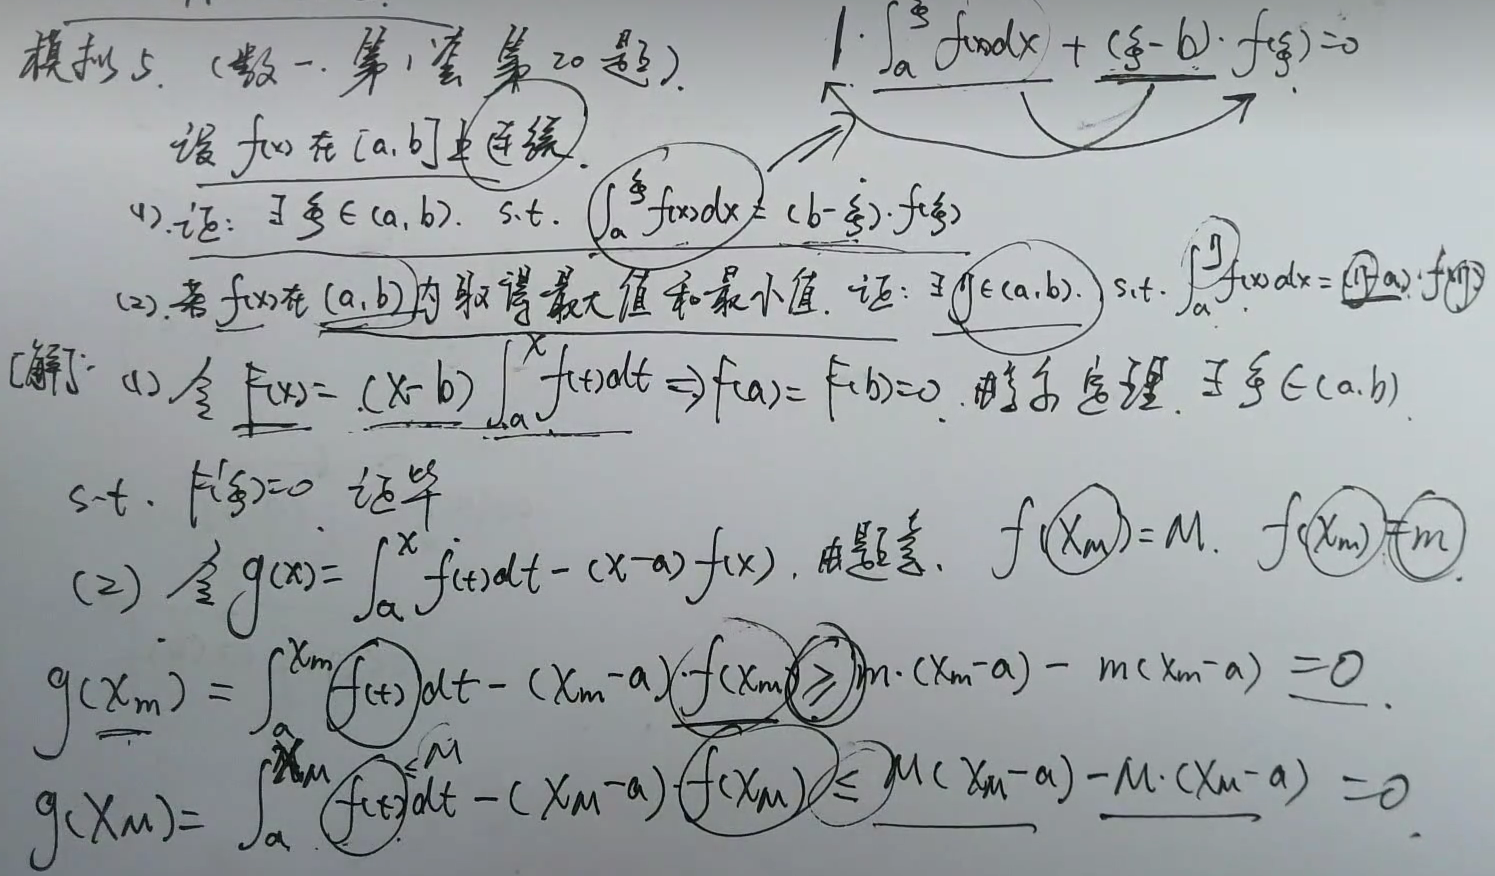 模拟5. (数一. 第1套 第20题).
1·∫_a^ξ f(x)dx + (ξ-b)·f(ξ)=0
设 f(x) 在 [a,b] 上连续.
(1). 证: ∃ξ∈(a,b). s.t. ∫_a^ξ f(x)dx = (b-ξ)·f(ξ)
(2). 若 f(x) 在 (a,b) 内取得最大值和最小值. 证: ∃η∈(a,b). s.t. ∫_a^η f(x)dx = (η-a)·f(η)
[解]: (1) 令 F(x)= (x-b)∫_a^x f(t)dt ⇒ F(a)= F(b)=0. 由罗尔定理. ∃ξ∈(a,b).
s.t. F'(ξ)=0 证毕
(2) 令 g(x)= ∫_a^x f(t)dt - (x-a) f(x). 由题意. f(x_M)=M. f(x_m)=m.
g(x_m) = ∫_a^{x_m} f(t)dt - (x_m-a)·f(x_m) ≥ m·(x_m-a) - m(x_m-a) =0.
g(x_M)= ∫_a^{x_M} f(t)dt - (x_M-a)·f(x_M) ≤ M(x_M-a) - M·(x_M-a) =0.
≤M